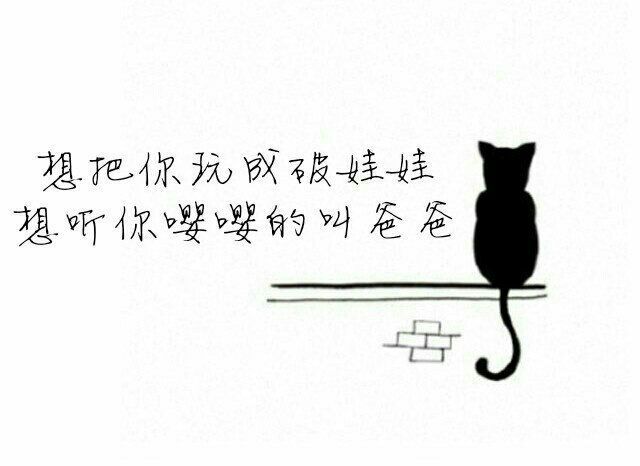 想把你玩成破娃娃
想听你嘤嘤的叫爸爸